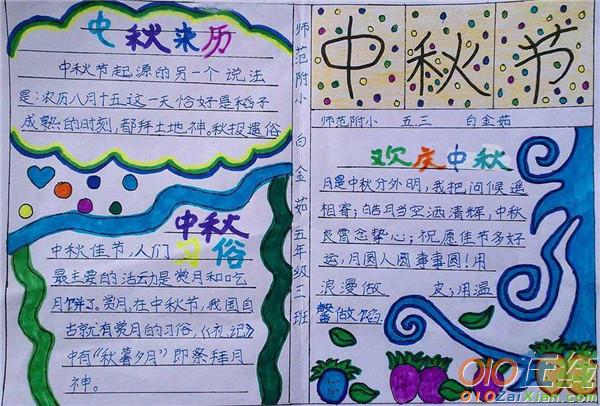 中秋来历
中秋节起源的另一个说法
是:农历八月十五这一天恰好是稻子
成熟的时刻,都拜土地神。秋报遗俗
中秋
习俗
中秋佳节,人们
最主要的活动是赏月和吃
月饼了。赏月,在中秋节,我国自
古就有赏月的习俗,《礼记》
中有“秋暮夕月”即祭拜月
神。
师范附小 白金茹 五年级三班
中秋节
师范附小 五.三 白金茹
欢庆中秋
月是中秋分外明,我把问候遥
相寄;皓月当空洒清辉,中秋
良宵念挚心;祝愿佳节多好
运,月圆人圆事事圆!用
浪漫做 皮;用温
馨做馅
010在线
010ZaiXian.com